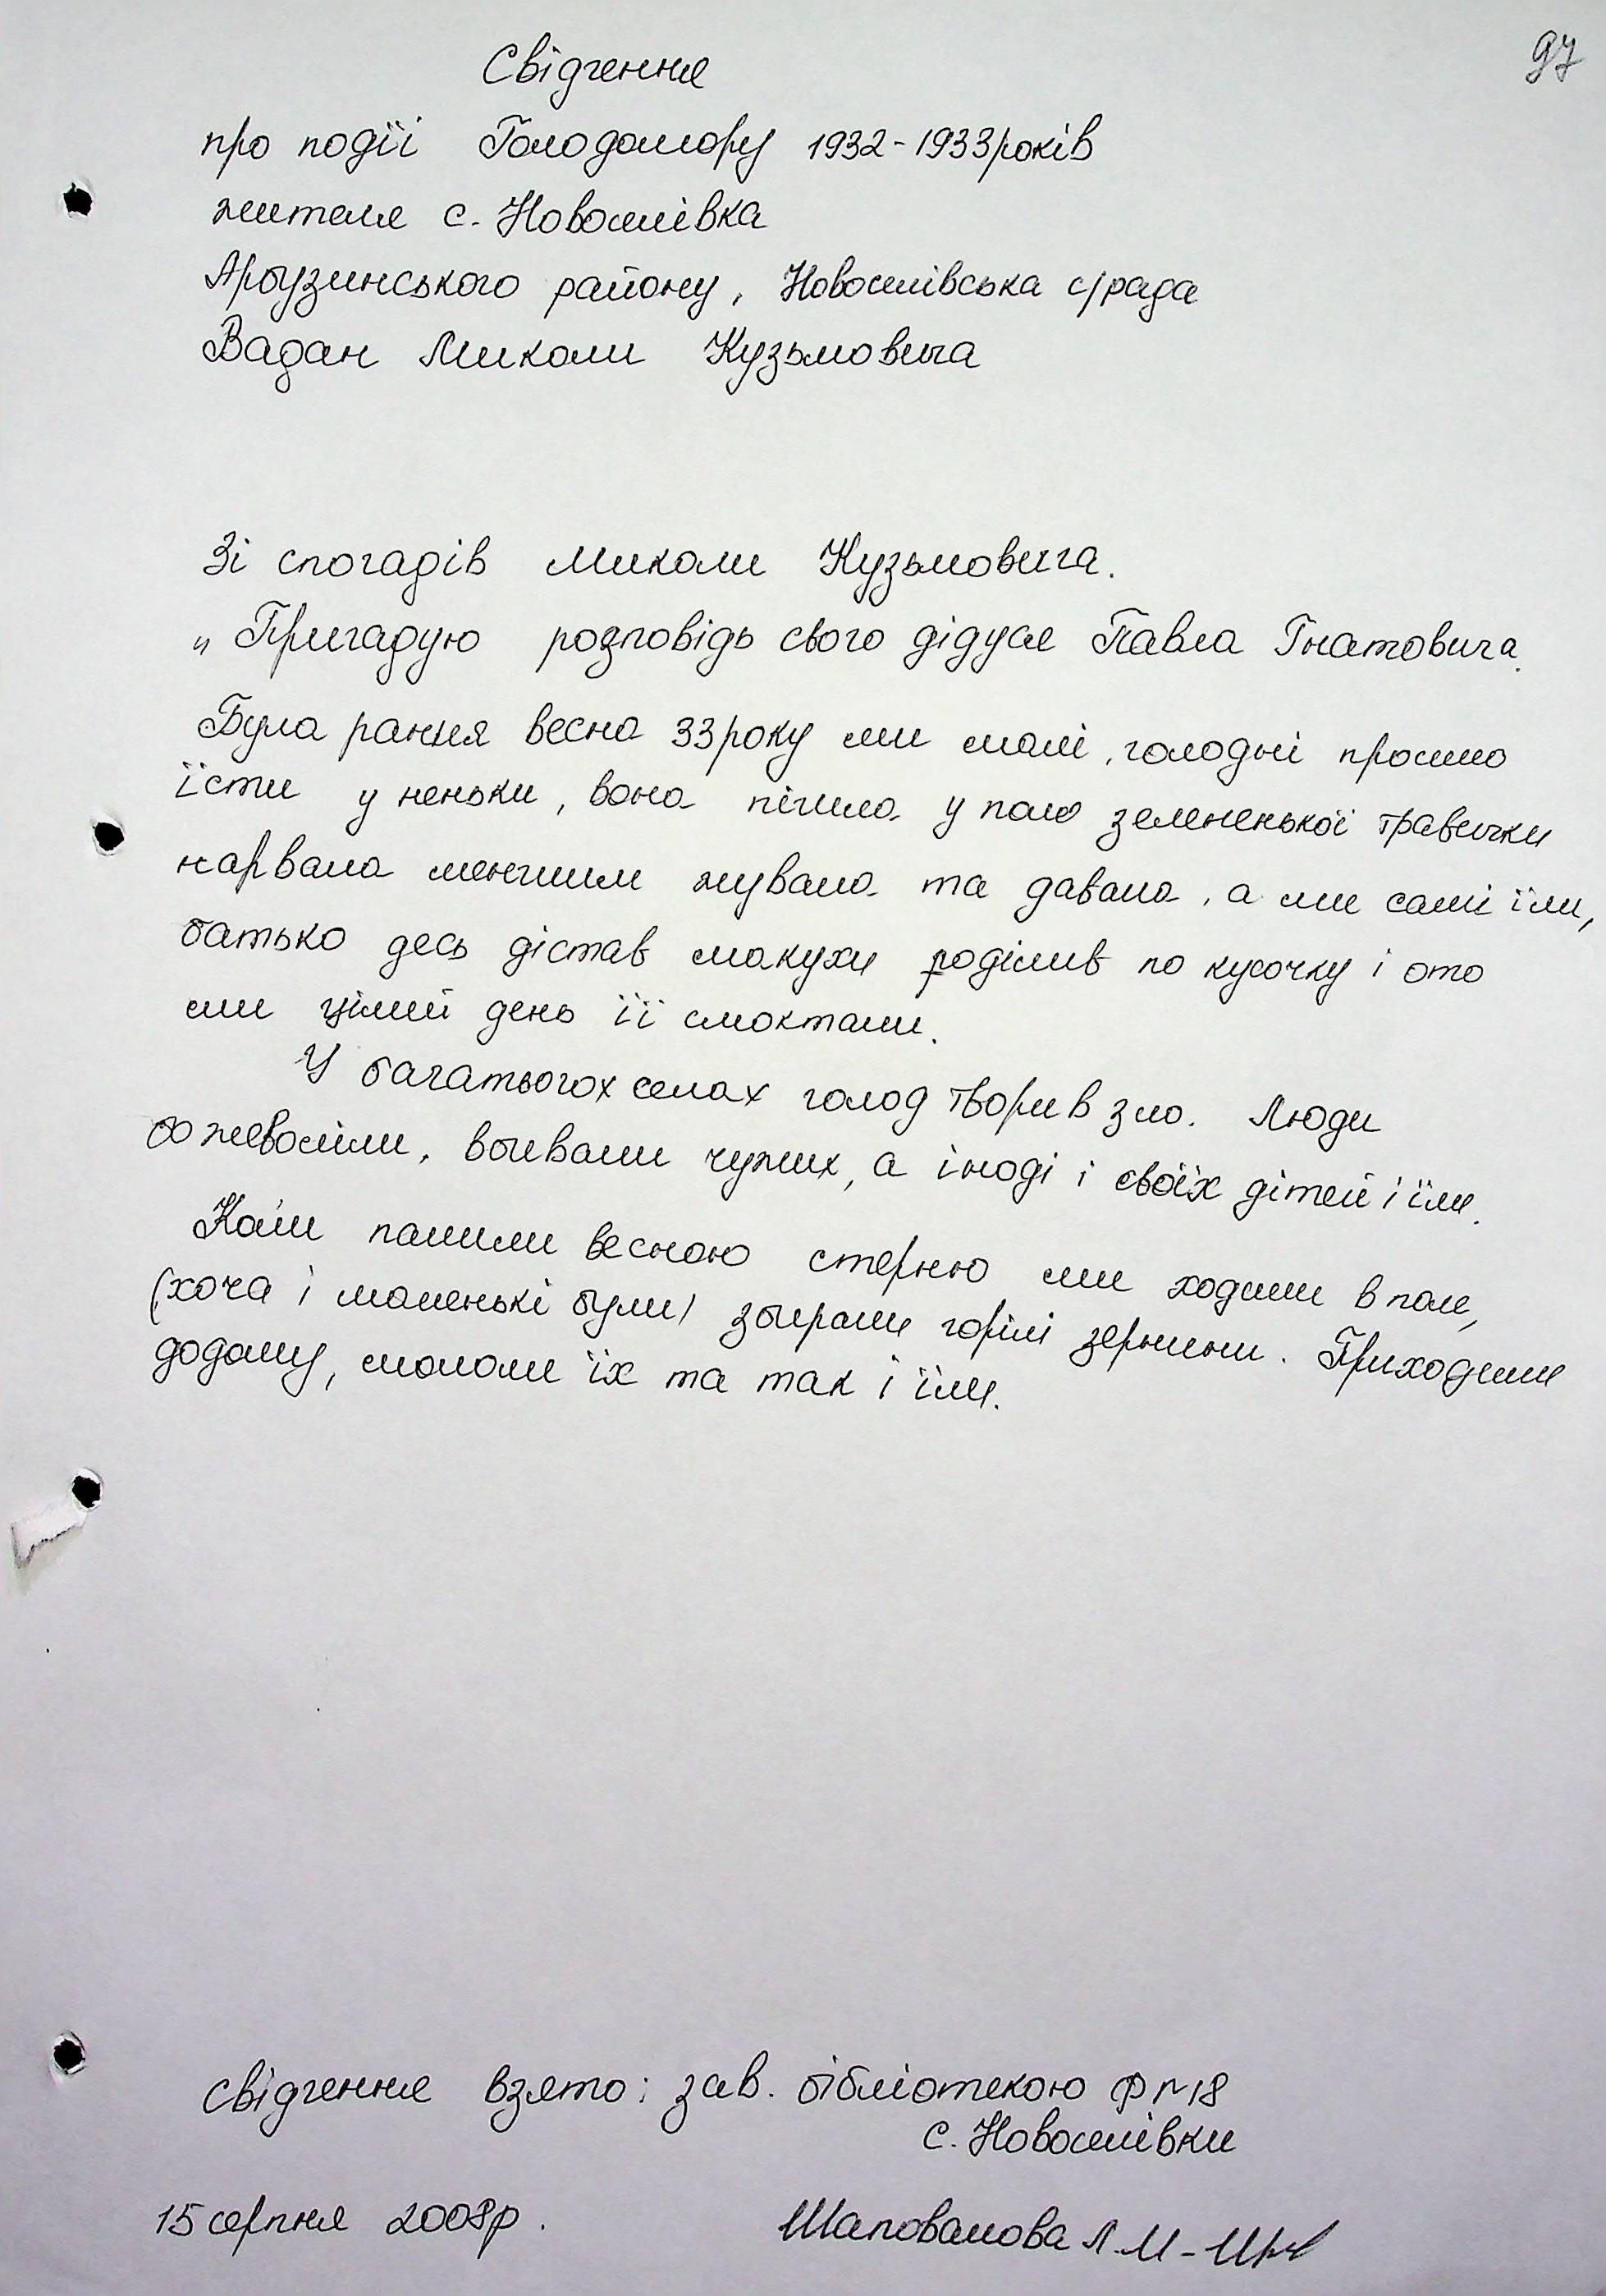 97
Свідчення
про події Голодомору 1932-1933років
жителя с. Новоселівка
Арбузинського району, Новоселівська с/рада
Вадан Миколи Кузьмовича
Зі спогадів Миколи Кузьмовича.
„Пригадую розповідь свого дідуся Павла Гнатовича.
Була рання весна 33року ми малі, голодні просимо
їсти у неньки, вона пішла у поле зелененької травички
нарвала меншим жувала та давала, а ми самі їли,
батько десь дістав макухи роділив по кусочку і ото
ми цілий день її смоктали.
У багатьогох селах голод творив зло. Люди
божеволіли, вбивали чужих, а іноді і своїх дітей і їли.
Коли палили весною стерню ми ходили в поле,
(хоча і маленькі були) збирали горілі зернини. Приходили
додому, мололи їх та так і їли.
свідчення взято: зав. бібліотекою ф№18
с. Новоселівки
15 серпня 2008р.
Шаповалова Л.М-